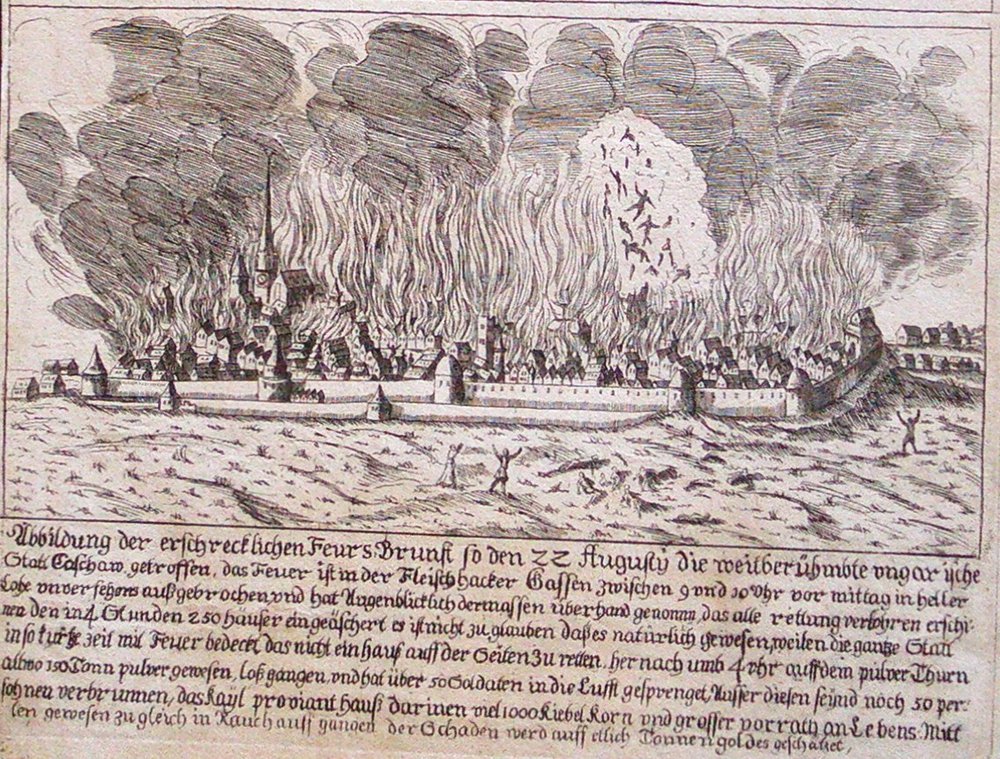 Abbildung der erschrecklichen Feurs Brunst so den 22 Augusty die weitberühmbte ungarische
Statt Caschaw getroffen, das Feuer ist in der Fleischhacker Gassen zwischen 9 und 10 Uhr vor mittag in heller
Lohe unversehens aufgebrochen und hat Augenblicklich dermassen überhand genomm, das alle rettung verlohren erschi-
nen den in 4 Stunden 250 häuser eingeäschert es ist nicht zu glauben daß es natürlich gewesen, weilen die gantze Statt
in so kurtze zeit mit Feuer bedeckt, das nicht ein hauß auff der Seiten zu retten, her nach umb 4 vhr auff dem pulver Thurn
alwo 150 Tonn pulver gewesen, loß gangen, vnd hat über 50 Soldaten in die Lufft gesprenget, Ausser diesen seynd noch 50 per-
sohnen verbrunnen, das Kayl proviant hauß darinen viel 1000 Kiebel Korn vnd grosser vorrath an Lebens Mitt
len gewesen zugleich in Rauch auff gangen der Schaden werd auff etlich Tonnen goldes geschätzet,